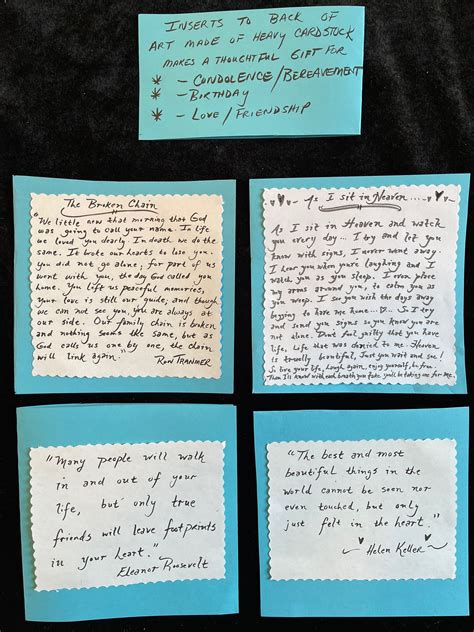 INSERTS TO BACK OF
ART MADE OF HEAVY CARDSTOCK
MAKES A THOUGHTFUL GIFT FOR
* - CONDOLENCE/BEREAVEMENT
* - BIRTHDAY
* - LOVE/FRIENDSHIP
The Broken Chain
"We little new that morning that God
was going to call your name. In life
we loved you dearly. In death we do the
same. It broke our hearts to lose you.
You did not go alone; for part of us
went with you, the day God called you
home. You left us peaceful memories,
Your love is still our guide; and though
we can not see you, you are always at
our side. Our family chain is broken
and nothing seems the same, but as
God calls us one by one, the chain
will link again."
RON TRANMER
As I sit in Heaven....
As I sit in Heaven and watch
you every day... I try and let you
know with signs, I never went away.
I hear you when you're laughing and I
watch you as you sleep. I even place
my arms around you, to calm you as
you weep. I see you wish the days away
begging to have me home. So I try
and send you signs so you know you are
not alone. Dont feel guilty that you have
life, life that was denied to me. Heaven
is truely beautiful, Just you wait and see!
So live your life, laugh again, enjoy yourself, be free.
Then I know with each breath you take you'll be taking one for me.
"Many people will walk
in and out of your
life, but only true
friends will leave footprints
in your heart."
Eleanor Roosevelt
"The best and most
beautiful things in the
world cannot be seen nor
even touched, but only
just felt in the heart."
Helen Keller